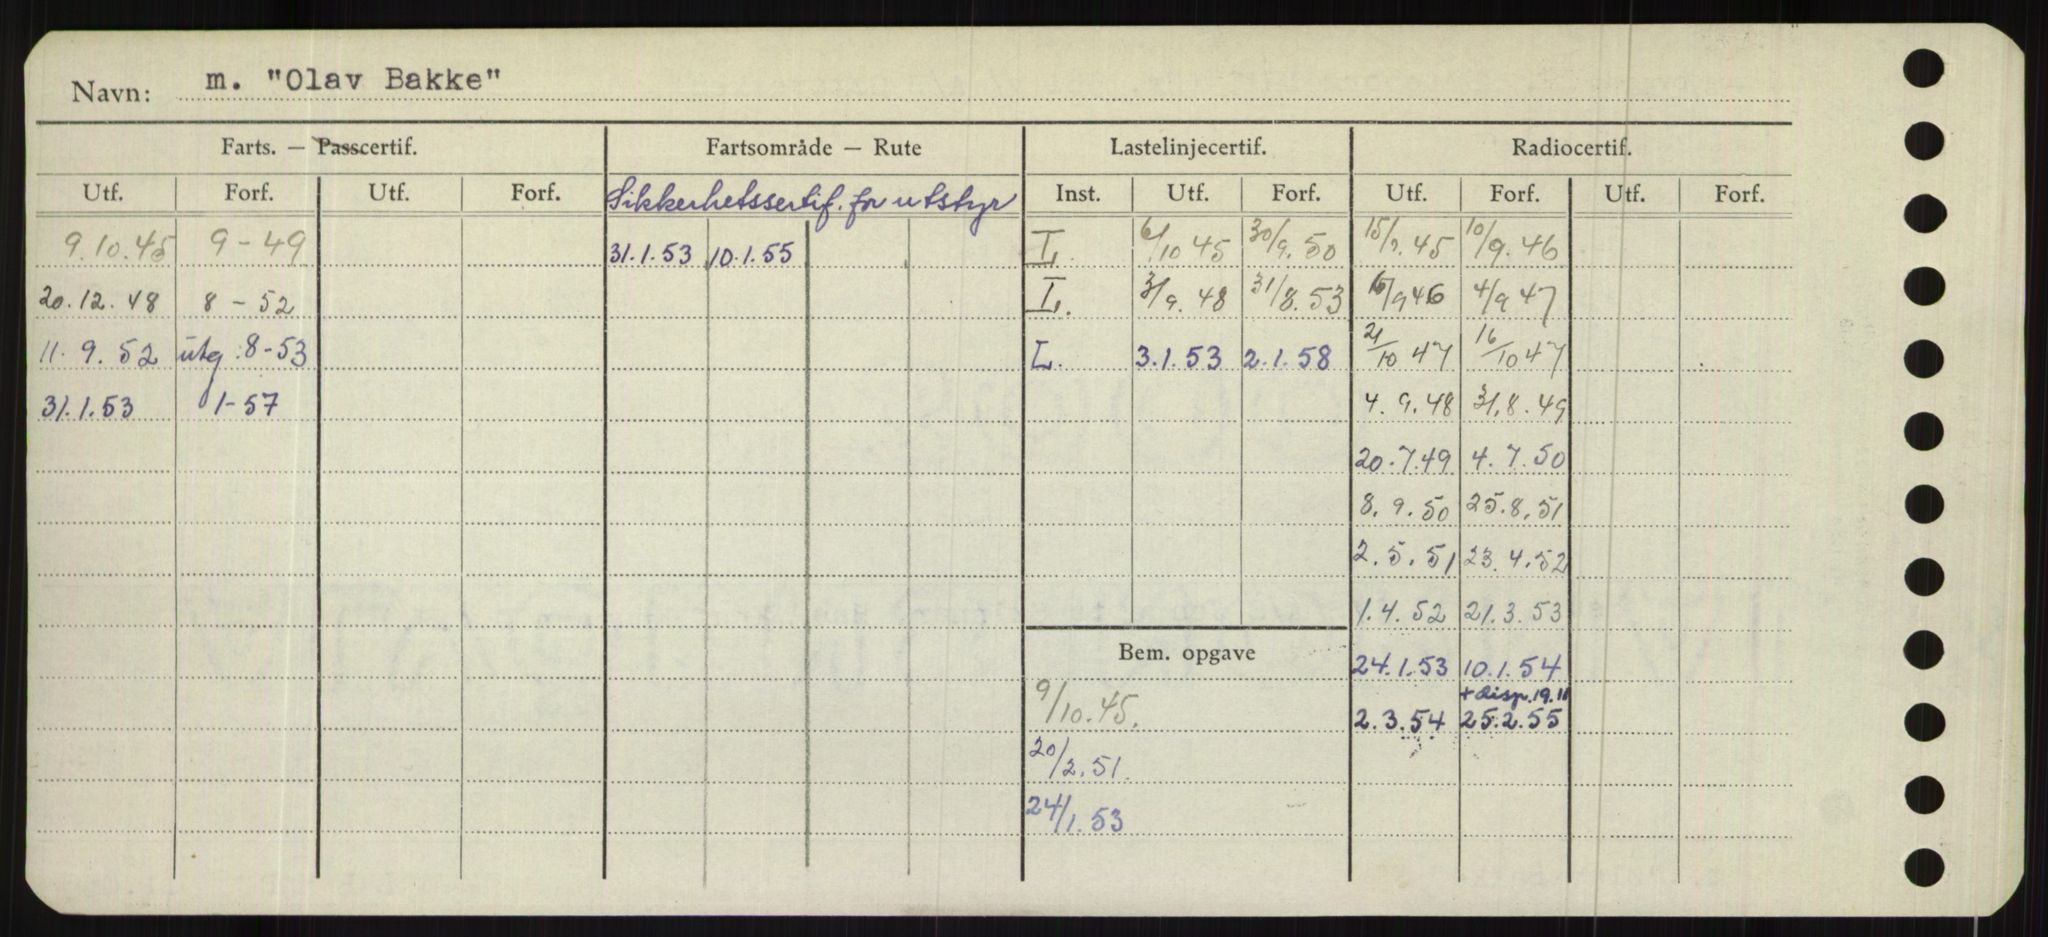 Navn: m. "Olav Bakke"
Farts. — Passcertif. Fartsområde — Rute Lastelinjecertif. Radiocertif.
Utf. Forf. Utf. Forf. Sikkerhetssertif. for utstyr Inst. Utf. Forf. Utf. Forf. Utf. Forf.
9.10.45 9-49 31.1.53 10.1.55 I. 6/10 45 30/9.50 15/9.45 10/9.46
20.12.48 8-52 I. 3/9.48 31/8.53 16/9 46 4/9 47
11.9.52 utg:8-53 I. 3.1.53 2.1.58 21/10 47 16/10 47
31.1.53 1-57 4.9.48 31.8.49
20.7.49 4.7.50
8.9.50 25.8.51
2.5.51 23.4.52
1.4.52 21.3.53
Bem. opgave 24.1.53 10.1.54
+ disp. 19.11
9/10.45. 2.3.54 25.2.55
20/2.51.
24/1.53